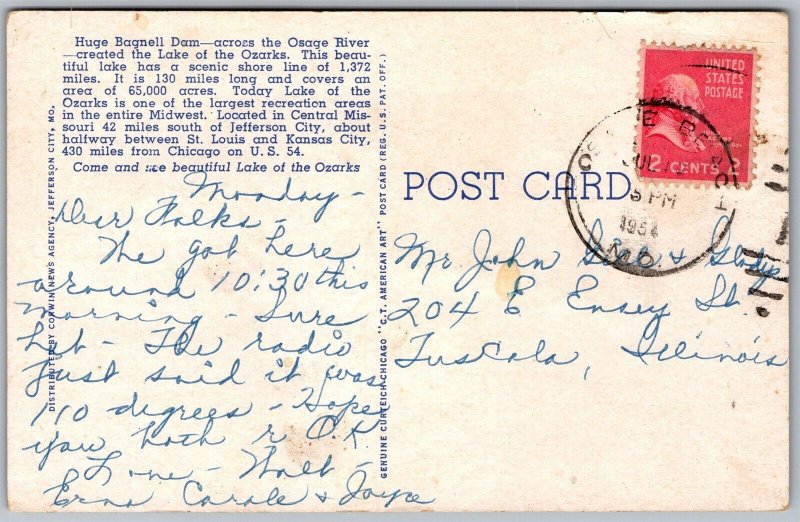 Huge Bagnell Dam—across the Osage River
—created the Lake of the Ozarks. This beau-
tiful lake has a scenic shore line of 1,372
miles. It is 130 miles long and covers an
area of 65,000 acres. Today Lake of the
Ozarks is one of the largest recreation areas
in the entire Midwest. Located in Central Mis-
souri 42 miles south of Jefferson City, about
halfway between St. Louis and Kansas City,
430 miles from Chicago on U.S. 54.
Come and see beautiful Lake of the Ozarks
DISTRIBUTED BY CORWIN NEWS AGENCY, JEFFERSON CITY, MO.
Monday-
Dear Folks-
The got here
around 10:30 this
morning - Sure
hot - The radio
just said it was
110 degrees - Hope
you both r O.K.
Love - Walt -
Erna Carole & Joyce
GENUINE CURTEICH-CHICAGO "C.T. AMERICAN ART" POST CARD (REG. U.S. PAT. OFF.)
POST CARD
UNITED
STATES
POSTAGE
2 CENTS 2
OSAGE BEACH
JUL
PM
1954
MO.
Mr John & Gladys
204 E Ensey St
Tuscola, Illinois